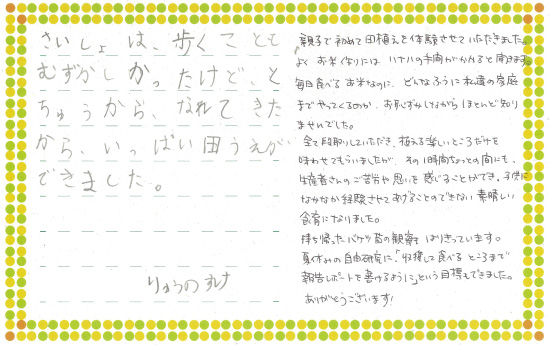 さいしょは、歩くことも
むずかしかったけど、と
ちゅうから、なれてきた
から、いっぱい田うえが
できました。
親子で初めて田植えを体験させていただきました。
よくお米作りには 八十八の手間がかかると聞きますが
毎日食べるお米なのに、どんなふうに私達の家庭
までやってくるのか、お恥ずかしいながらほとんど知り
ませんでした。
全て段取りしていただき、植える楽しいところだけを
味わせてもらいましたが、その1時間ちょっとの間にも、
生産者さんのご苦労や思いを感じることができ、子供に
なかなか経験させてあげることのできない素晴しい
食育になりました。
持ち帰ったバケツ苗の観察もはりきっています。
夏休みの自由研究に、「収穫して食べるところまで
報告レポートを書けるように」という目標もできました。
ありがとうございます!